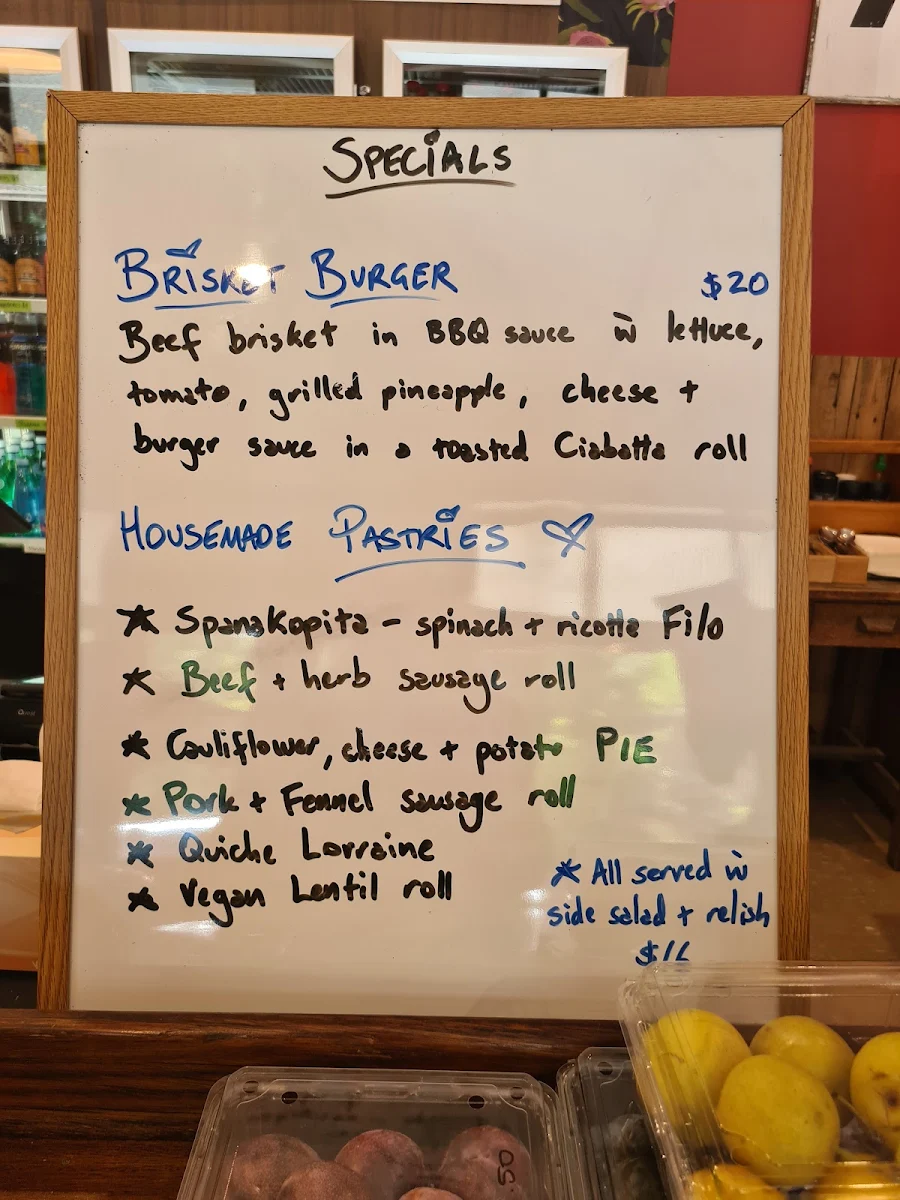 SPECIALS
BRISKET BURGER $20
Beef brisket in BBQ sauce ẁ lettuce,
tomato, grilled pineapple, cheese +
burger sauce in a toasted Ciabatta roll
HOUSEMADE PASTRIES
Spanakopita - spinach + ricotta Filo
Beef + herb sausage roll
Cauliflower, cheese + potato PIE
Pork + Fennel sausage roll
Quiche Lorraine
Vegan Lentil roll
* All served ẁ
side salad + relish